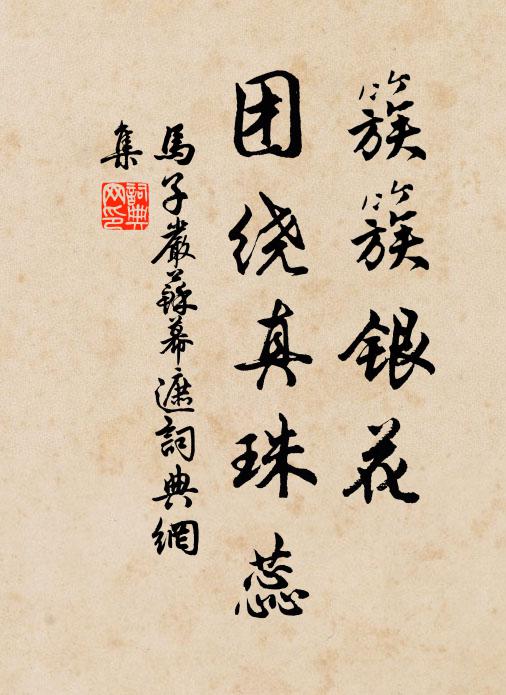 簇簇银花
团绕真珠蕊
馬子嚴蘇幕遮詞典網
集
詞典网印